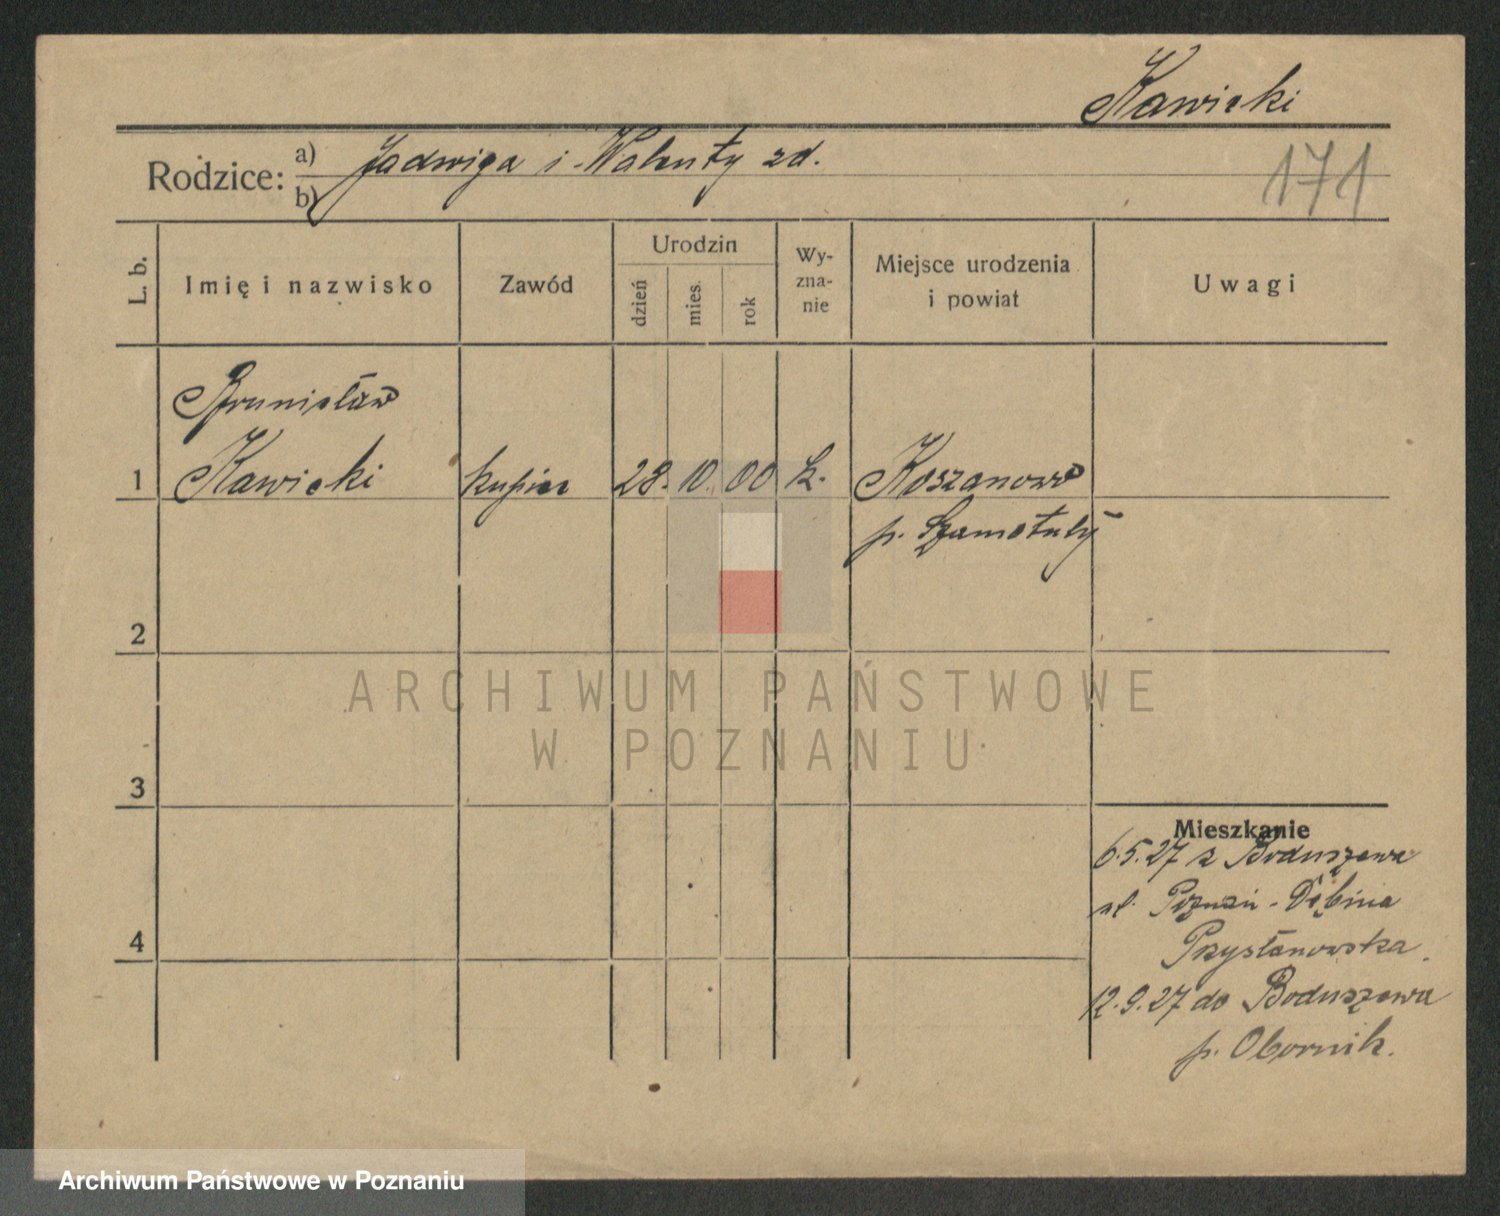 Kawicki
Rodzice: a) Jadwiga i Walenty zd.
b)
171
L. b.
Imię i nazwisko
Zawód
Urodzin
dzień
mies.
rok
Wy-
zna-
nie
Miejsce urodzenia
i powiat
Uwagi
Bronisław
1 Kawicki kupiec 28. 10. 00 k. Koszanowo
p. Szamotuły
2
3
4
Mieszkanie
6.5.27 z Boduszewa
Poznań - Dębina
Przystanowska.
12.9.27 do Boduszewa
p. Obornik.
ARCHIWUM PAŃSTWOWE
W POZNANIU
Archiwum Państwowe w Poznaniu